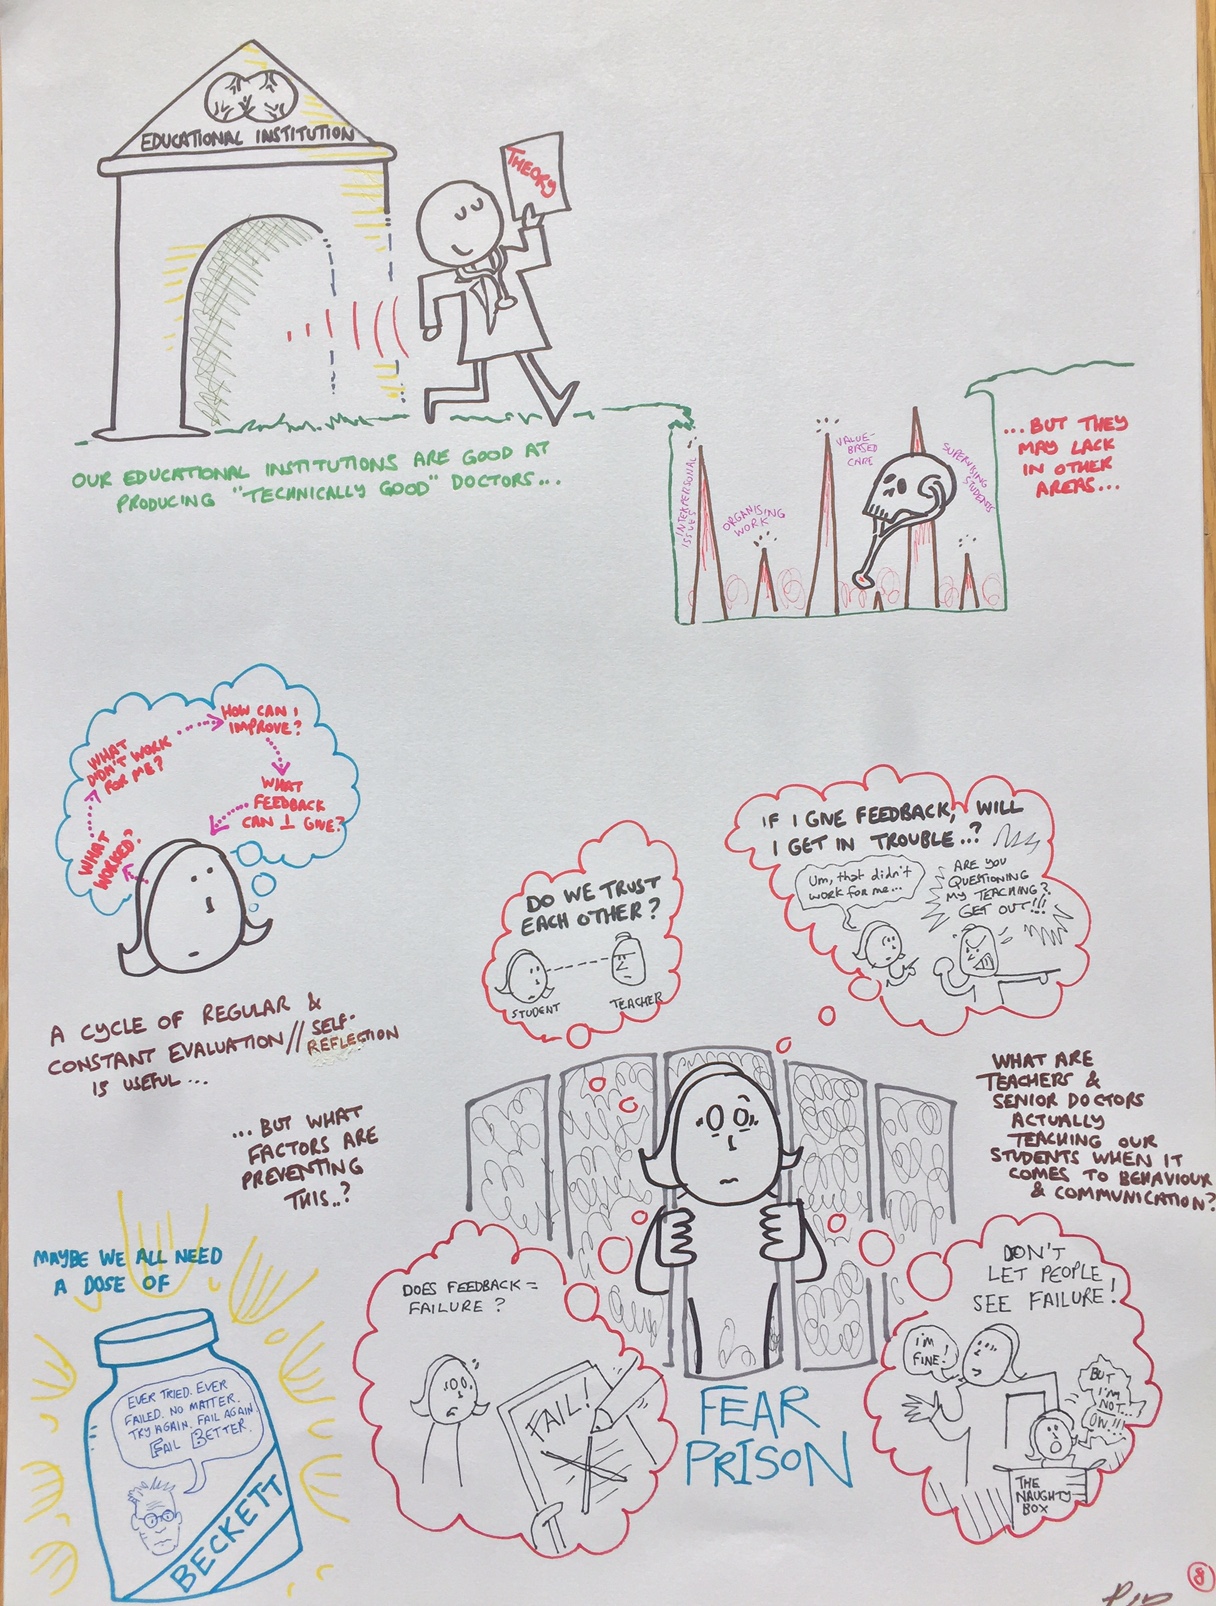 EDUCATIONAL INSTITUTION
THEORY
OUR EDUCATIONAL INSTITUTIONS ARE GOOD AT
PRODUCING "TECHNICALLY GOOD" DOCTORS...
INTERPERSONAL
ISSUES
ORGANISING
WORK
VALUE-
BASED
CARE
SUPERVISING
STUDENTS
...BUT THEY
MAY LACK
IN OTHER
AREAS...
WHAT
WORKED?
WHAT
DIDN'T WORK
FOR ME?
HOW CAN I
IMPROVE?
WHAT
FEEDBACK
CAN I GIVE?
A CYCLE OF REGULAR &
CONSTANT EVALUATION // SELF-
REFLECTION
IS USEFUL...
...BUT WHAT
FACTORS ARE
PREVENTING
THIS..?
DO WE TRUST
EACH OTHER?
STUDENT
TEACHER
IF I GIVE FEEDBACK, WILL
I GET IN TROUBLE...?
Um, that didn't
work for me...
ARE YOU
QUESTIONING
MY TEACHING?
GET OUT!!!
WHAT ARE
TEACHERS &
SENIOR DOCTORS
ACTUALLY
TEACHING OUR
STUDENTS WHEN IT
COMES TO BEHAVIOUR
& COMMUNICATION?
DOES FEEDBACK =
FAILURE?
FAIL!
FEAR
PRISON
DON'T
LET PEOPLE
SEE FAILURE!
I'M
FINE!
BUT
I'M
NOT...!
OW!!!
THE
NAUGHTY
BOX
MAYBE WE ALL NEED
A DOSE OF
EVER TRIED. EVER
FAILED. NO MATTER.
TRY AGAIN. FAIL AGAIN.
FAIL BETTER.
BECKETT
8